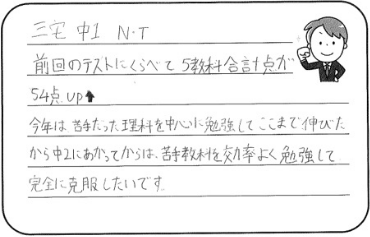 三宅 中1 N・T
前回のテストにくらべて 5教科合計点が
54点up↑
今年は苦手だった理科を中心に勉強してここまで伸びた
から中2にあがってからは、苦手教科を効率よく勉強して
完全に克服したいです。